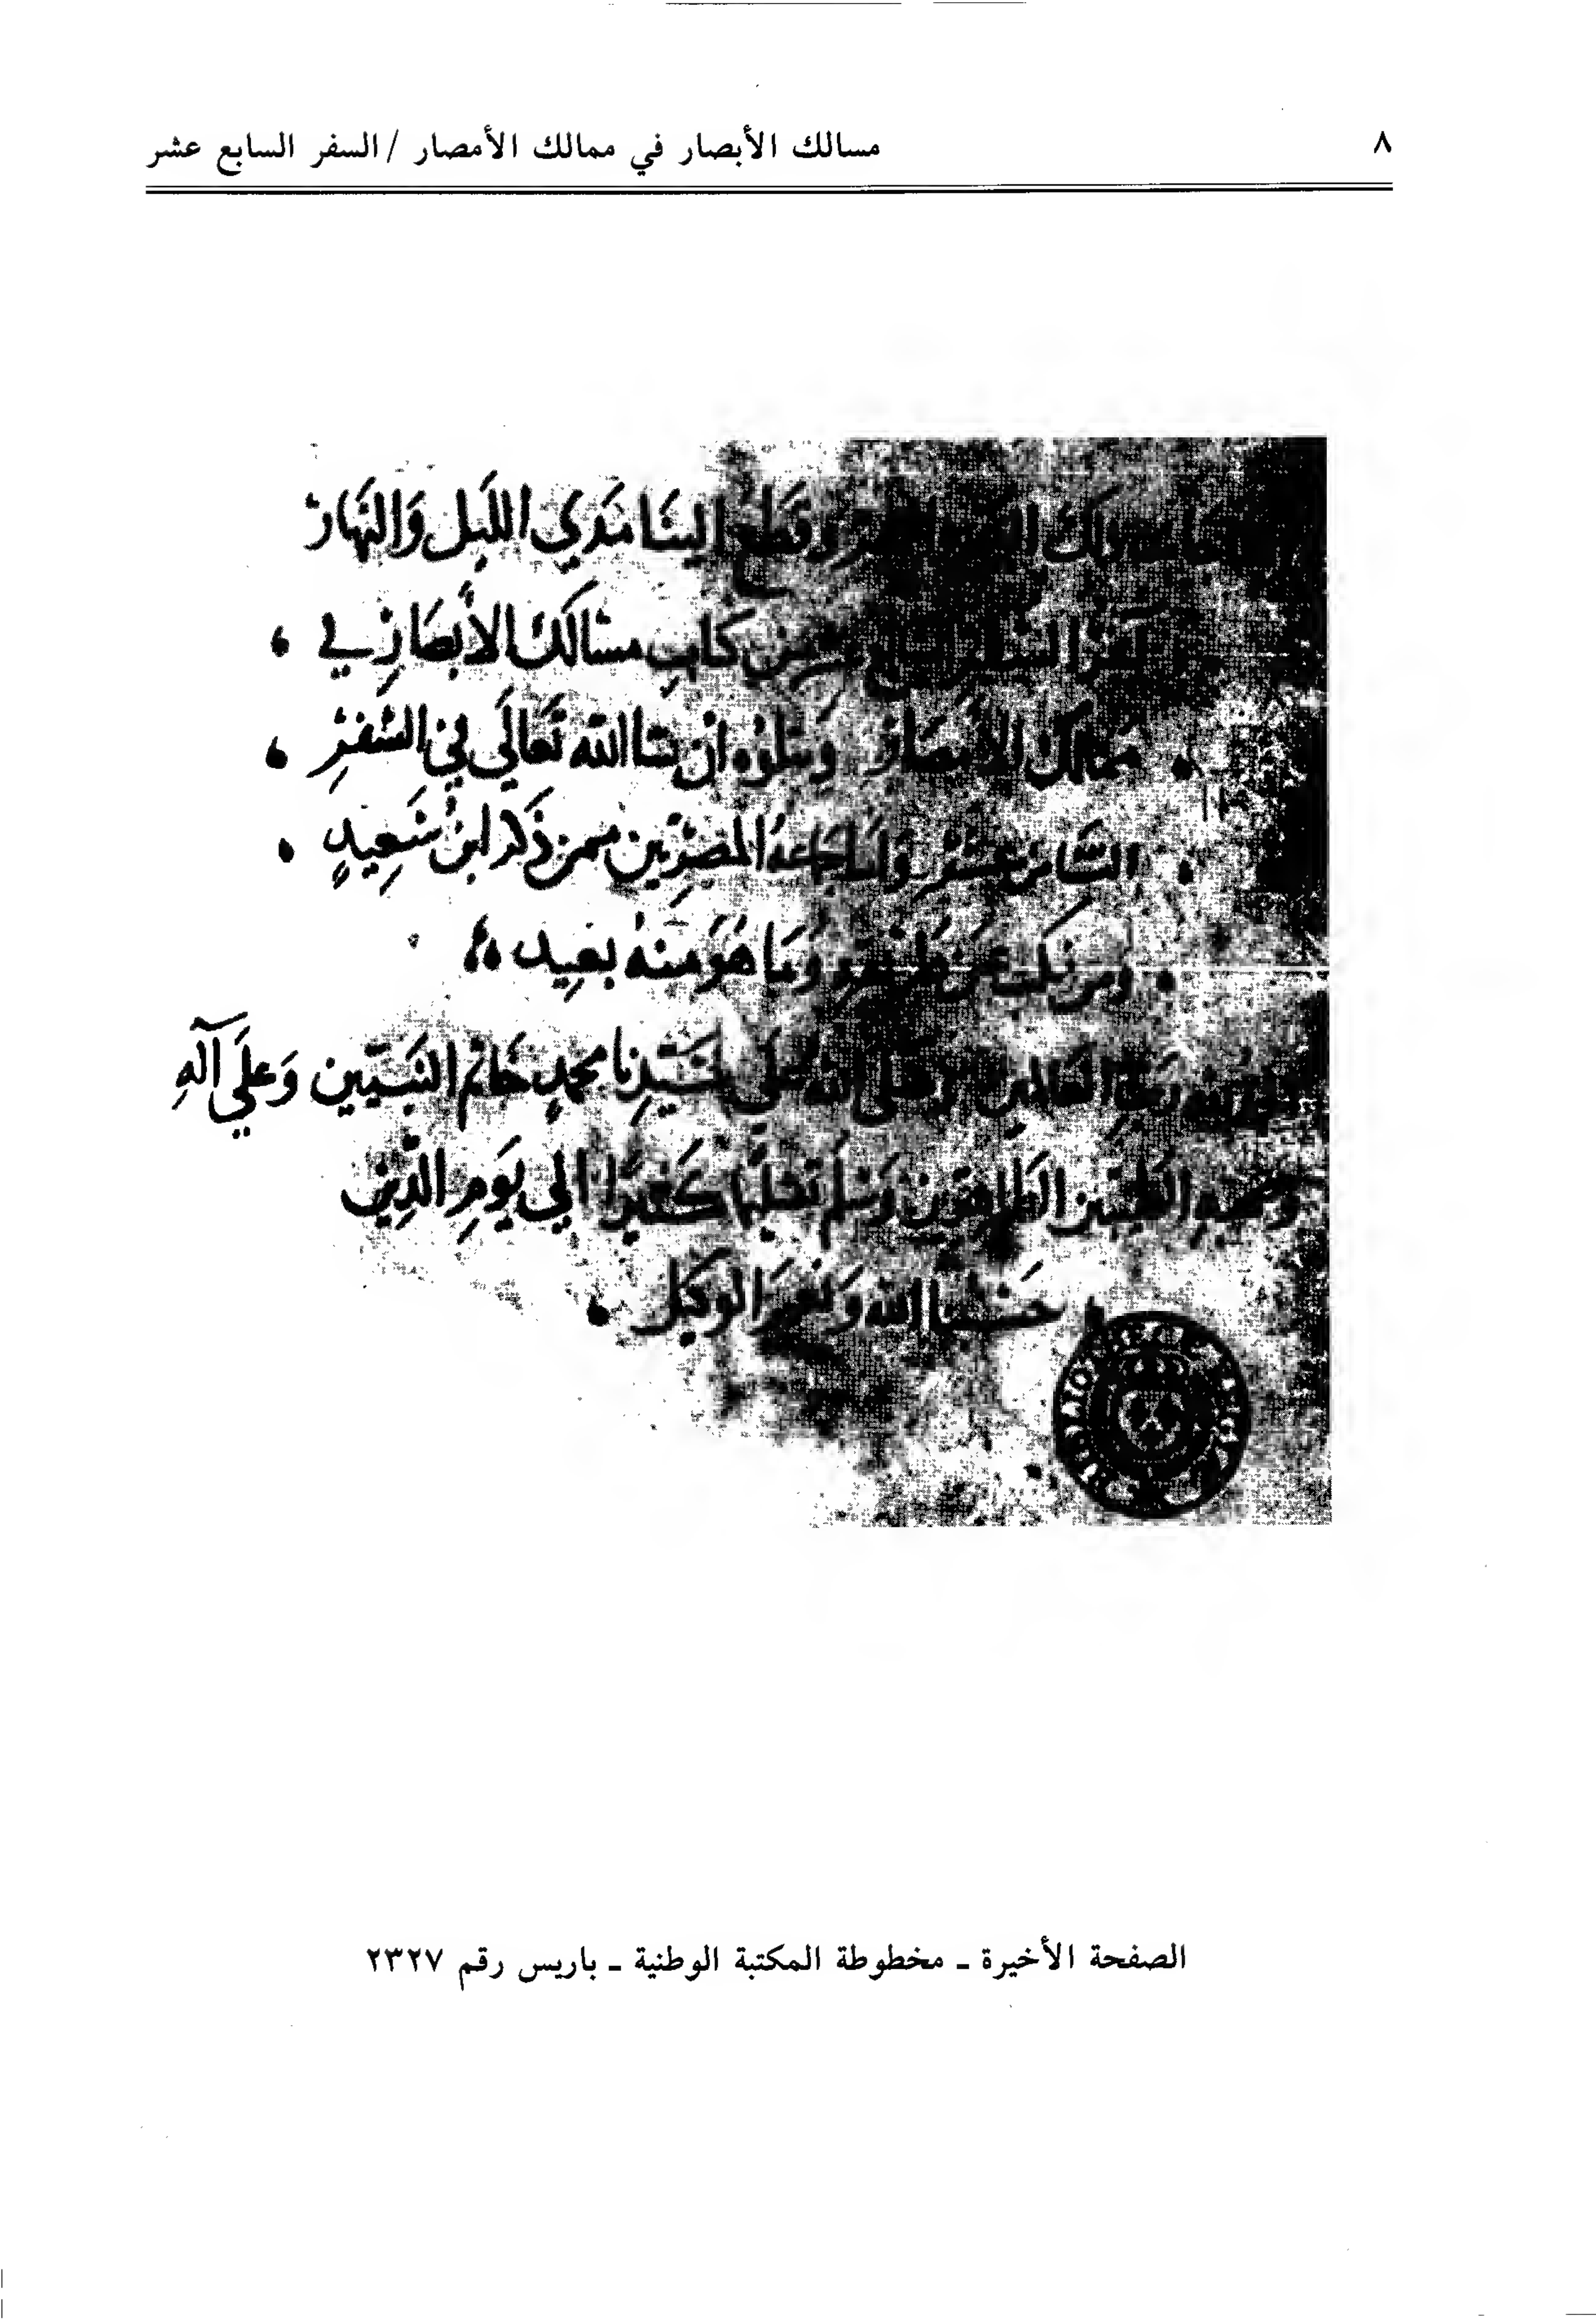 ٨
مسالك الأبصار في ممالك الأمصار / السفر السابع عشر
وقطع الينا مَدَي الليل وَالنهار
آخر السفر السابع عشر من كتابِ مسَالك الأبصَارِ في
ممالك الأمصَار وَيتلوه ان شا الله تعَالَي في السّفرِ
الثامن عشر وَاما جَماعة المصرِيين ممن ذكر ابن سَعِيدٍ
وَمَا هَوَ منهُ بعيد
رَبّ العَالمين وَصلى الله عَلَي سَيّدِنا محمدٍ خاتم النبَيّين وَعلَي آلهِ
وصحبهِ الطيبين الطاهرين وَسَلم تسليمًا كثيرًا الي يَومِ الدِّين
حسبنا الله وَنعم الوكيل
الصفحة الأخيرة ـ مخطوطة المكتبة الوطنية ـ باريس رقم ٢٣٢٧